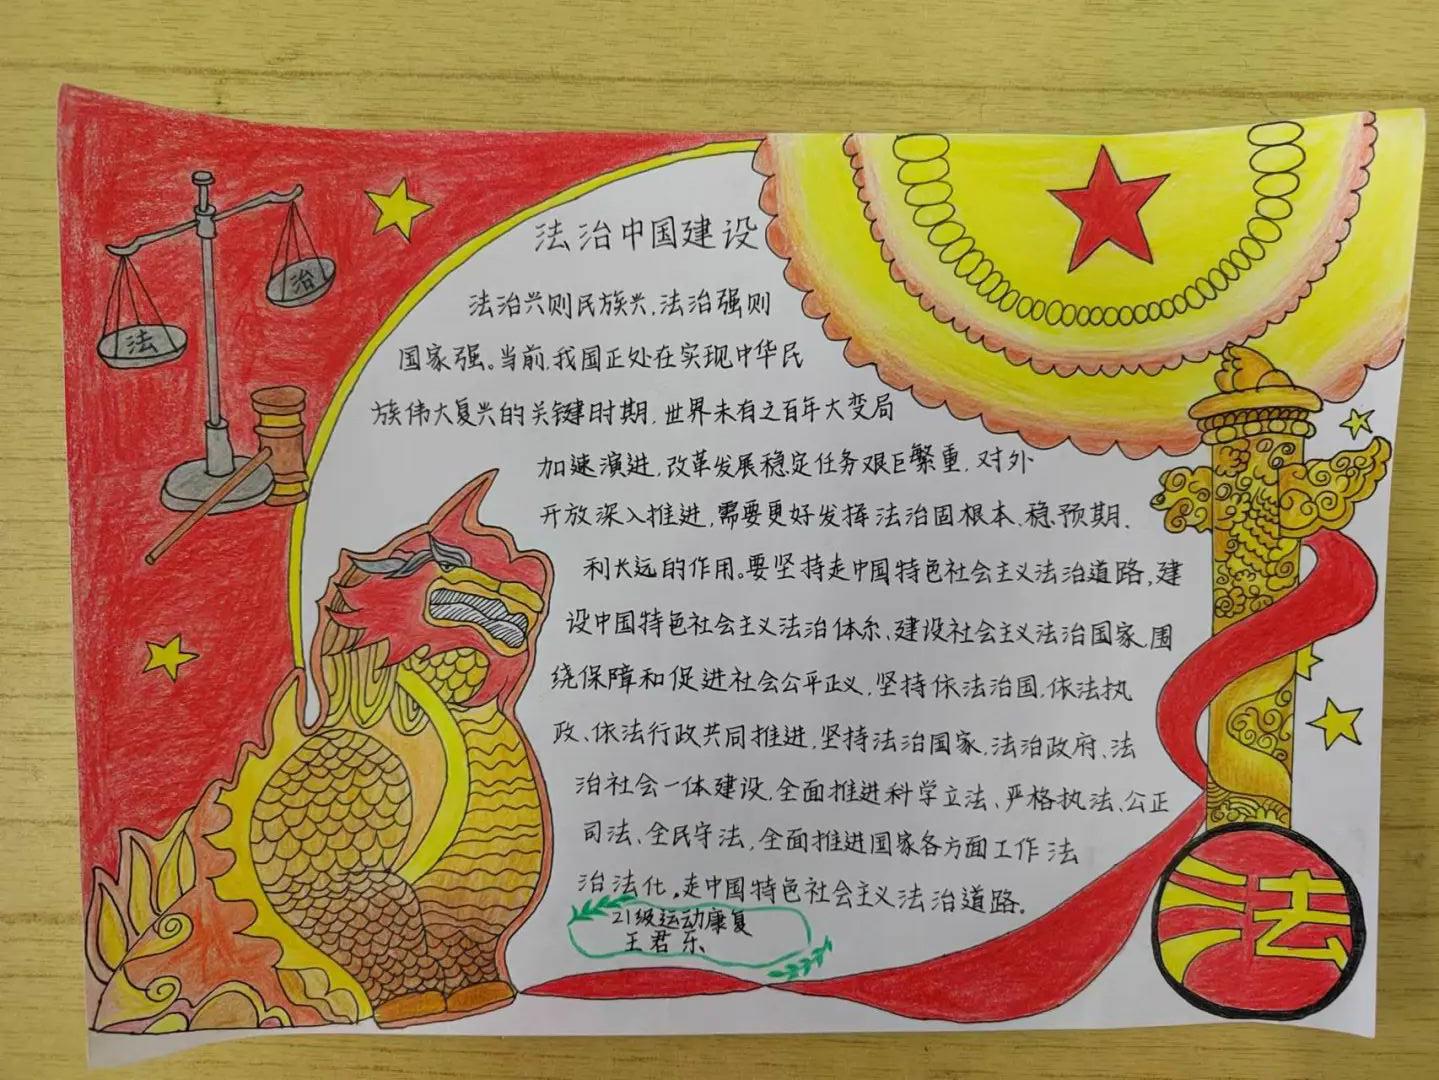 法治中国建设
治
法
法治兴则民族兴，法治强则
国家强。当前，我国正处在实现中华民
族伟大复兴的关键时期，世界未有之百年大变局
加速演进，改革发展稳定任务艰巨繁重，对外
开放深入推进，需要更好发挥法治固根本、稳预期、
利长远的作用。要坚持走中国特色社会主义法治道路，建
设中国特色社会主义法治体系、建设社会主义法治国家，围
绕保障和促进社会公平正义，坚持依法治国、依法执
政、依法行政共同推进，坚持法治国家、法治政府、法
治社会一体建设，全面推进科学立法、严格执法、公正
司法、全民守法，全面推进国家各方面工作法
治法化，走中国特色社会主义法治道路。
21级运动康复
王君乐
法